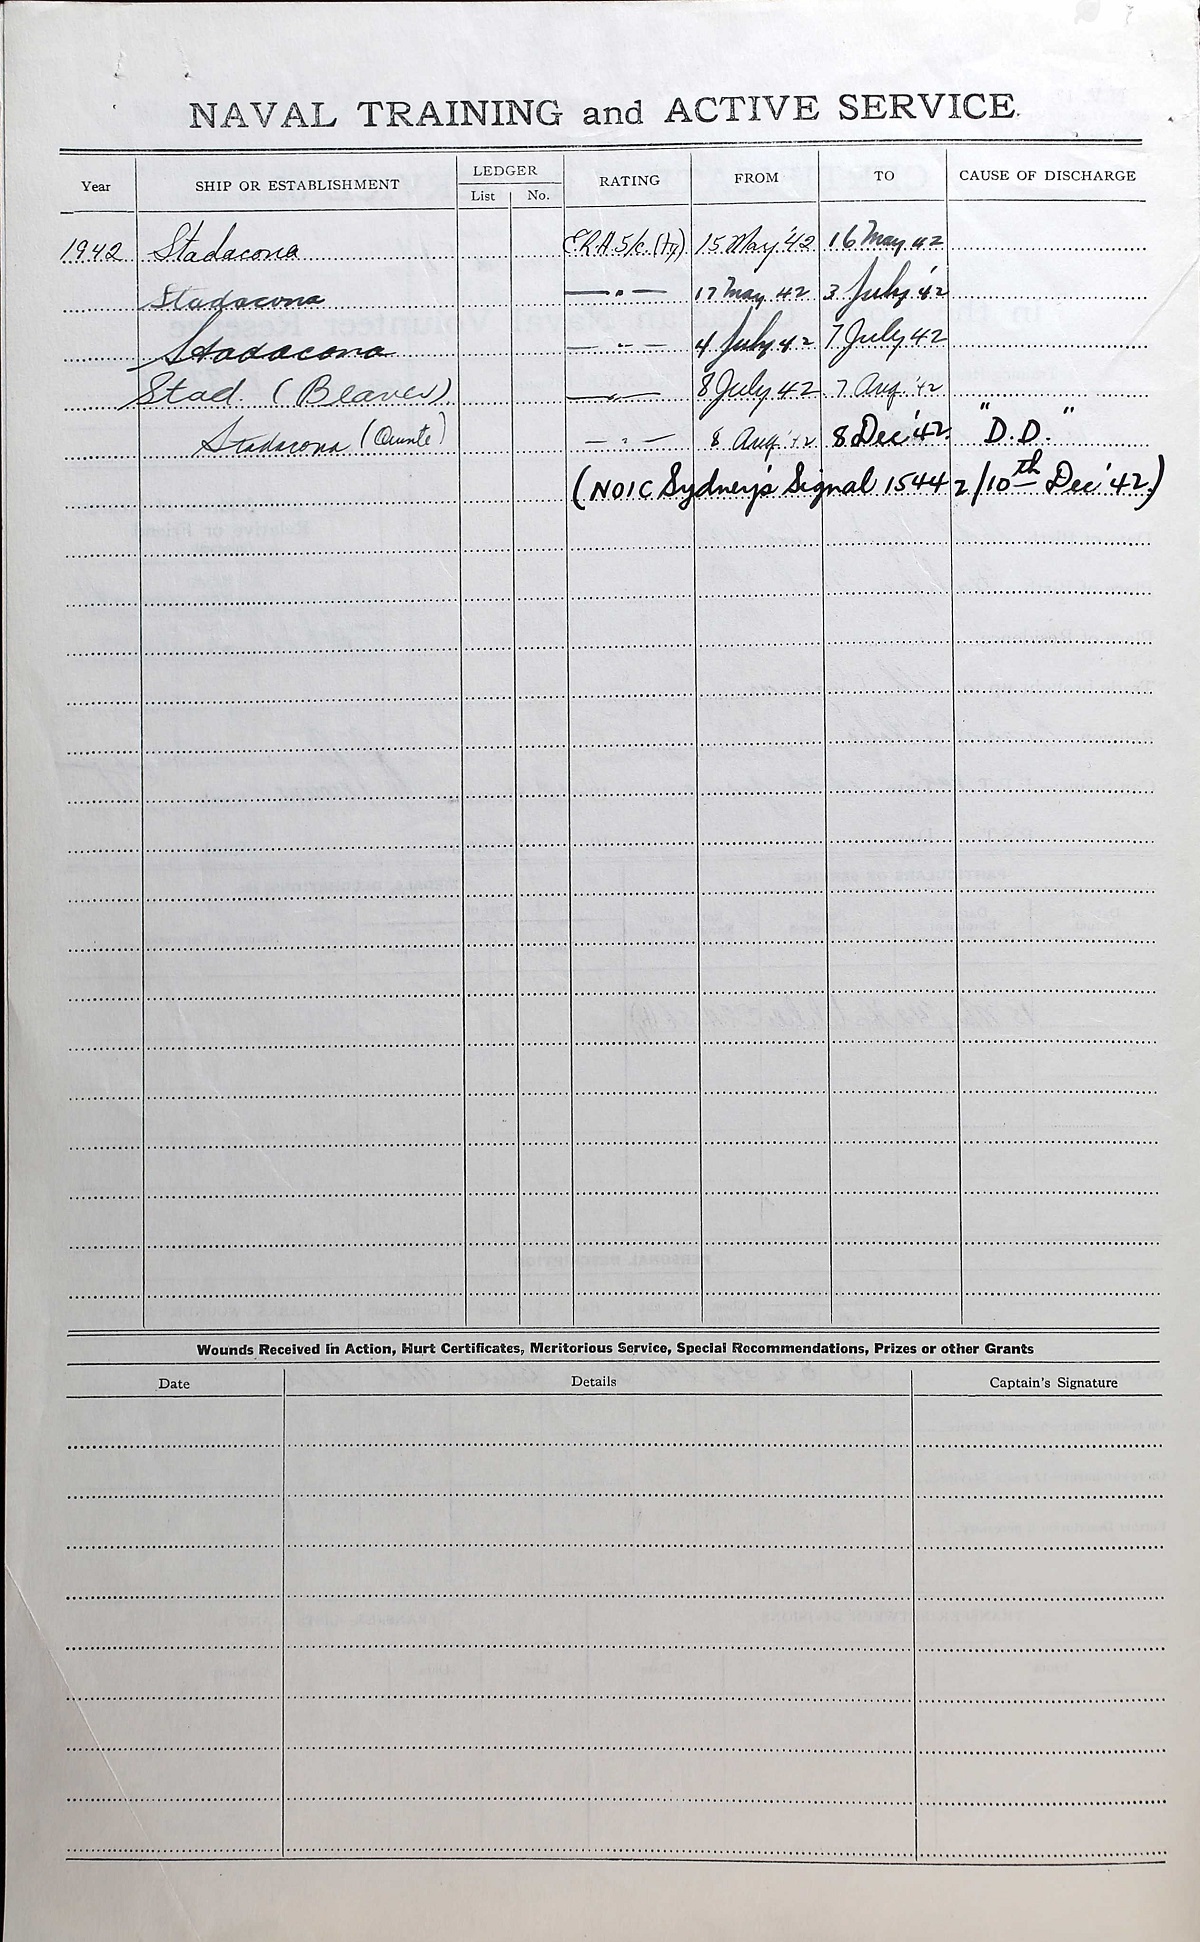 NAVAL TRAINING and ACTIVE SERVICE.
Year SHIP OR ESTABLISHMENT LEDGER List No. RATING FROM TO CAUSE OF DISCHARGE
1942 Stadacona E.R.A. 5/c. (Ty) 15 May '42 16 May 42
Stadacona —"— 17 May 42 3 July '42
Stadacona —"— 4 July 42 7 July 42
Stad. (Beaver) —"— 8 July 42 7 Aug. '42
Stadacona (Quinte) —"— 8 Aug '42 8 Dec '42 "D.D."
(NOIC Sydney's Signal 1544 z/10th Dec '42.)
Wounds Received in Action, Hurt Certificates, Meritorious Service, Special Recommendations, Prizes or other Grants
Date Details Captain's Signature